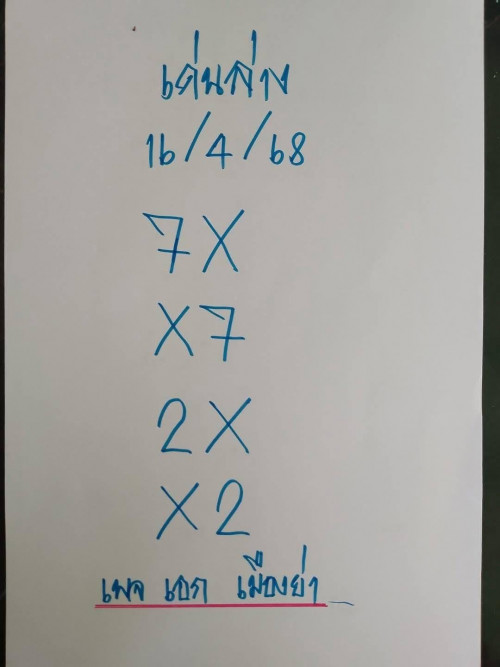 เด่นล่าง
16/4/68
7X
X7
2X
X2
เพจ เอก เมืองย่า